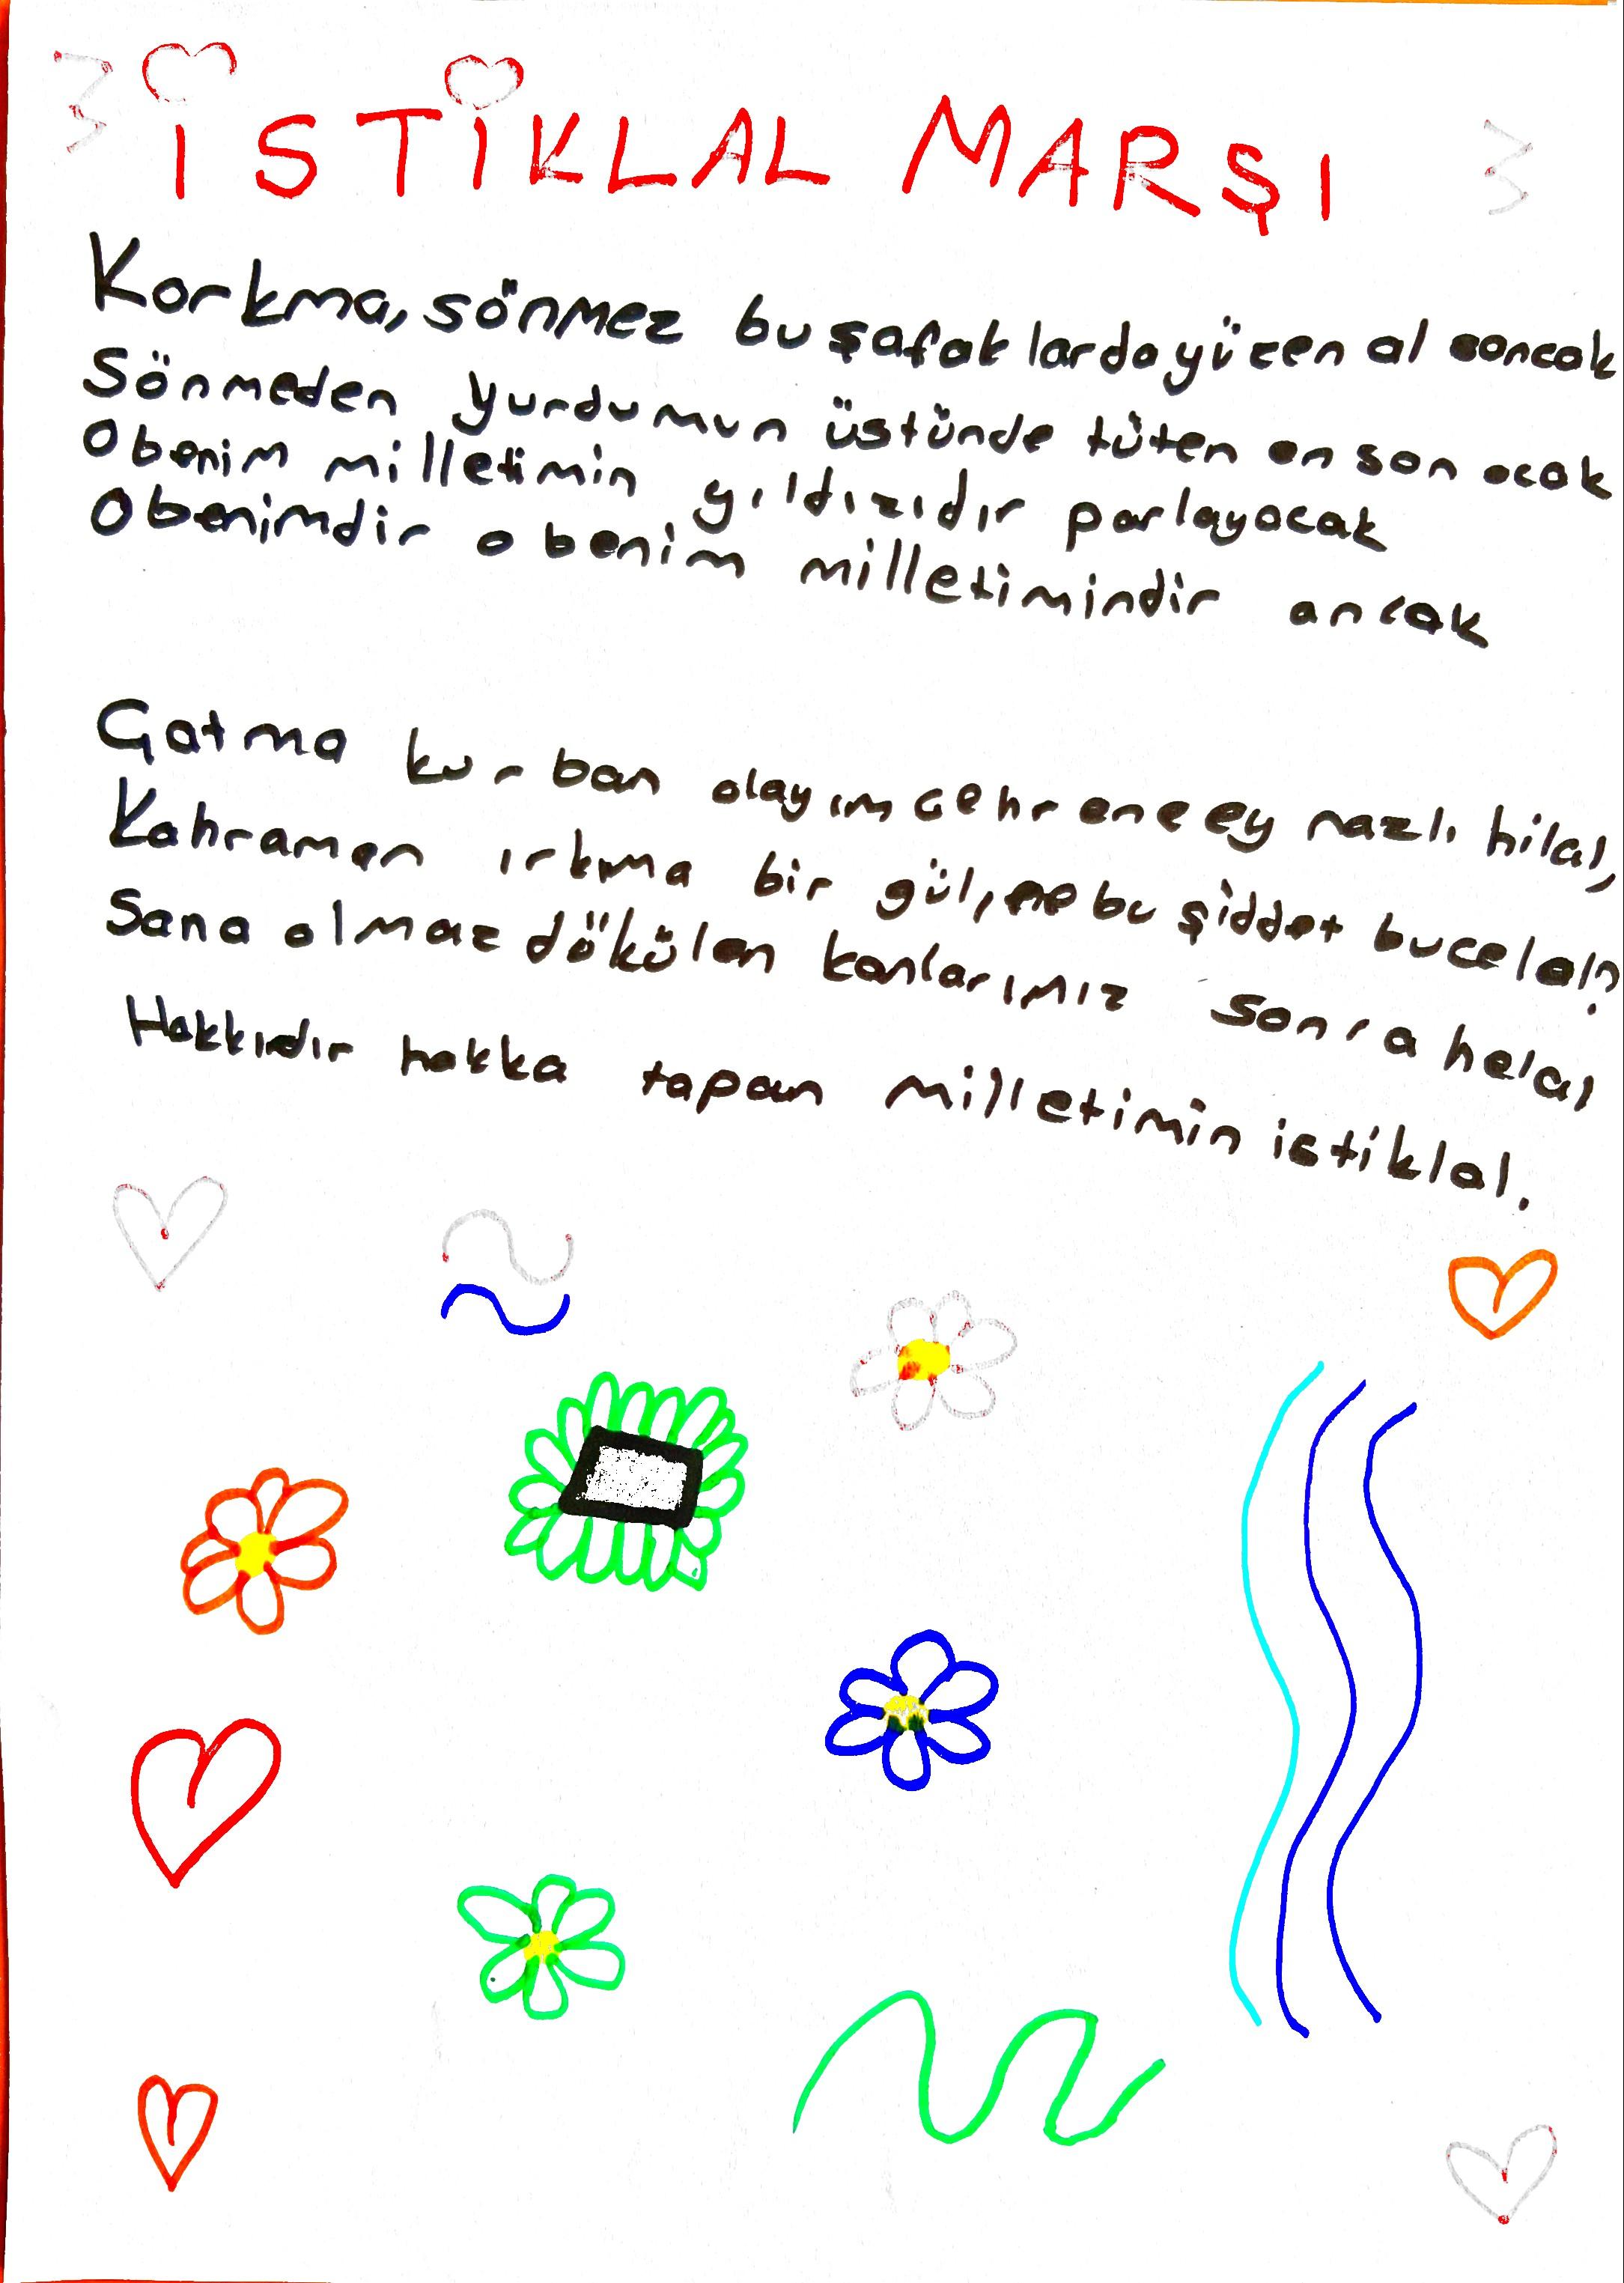 İSTİKLAL MARŞI
Korkma, sönmez bu şafaklarda yüzen al sancak
Sönmeden yurdumun üstünde tüten en son ocak
O benim milletimin yıldızıdır parlayacak
O benimdir o benim milletimindir ancak
Çatma kurban olayım çehrene ey nazlı hilal,
Kahraman ırkıma bir gül, ne bu şiddet bu celal?
Sana olmaz dökülen kanlarımız sonra helal
Hakkıdır hakka tapan milletimin istiklal.